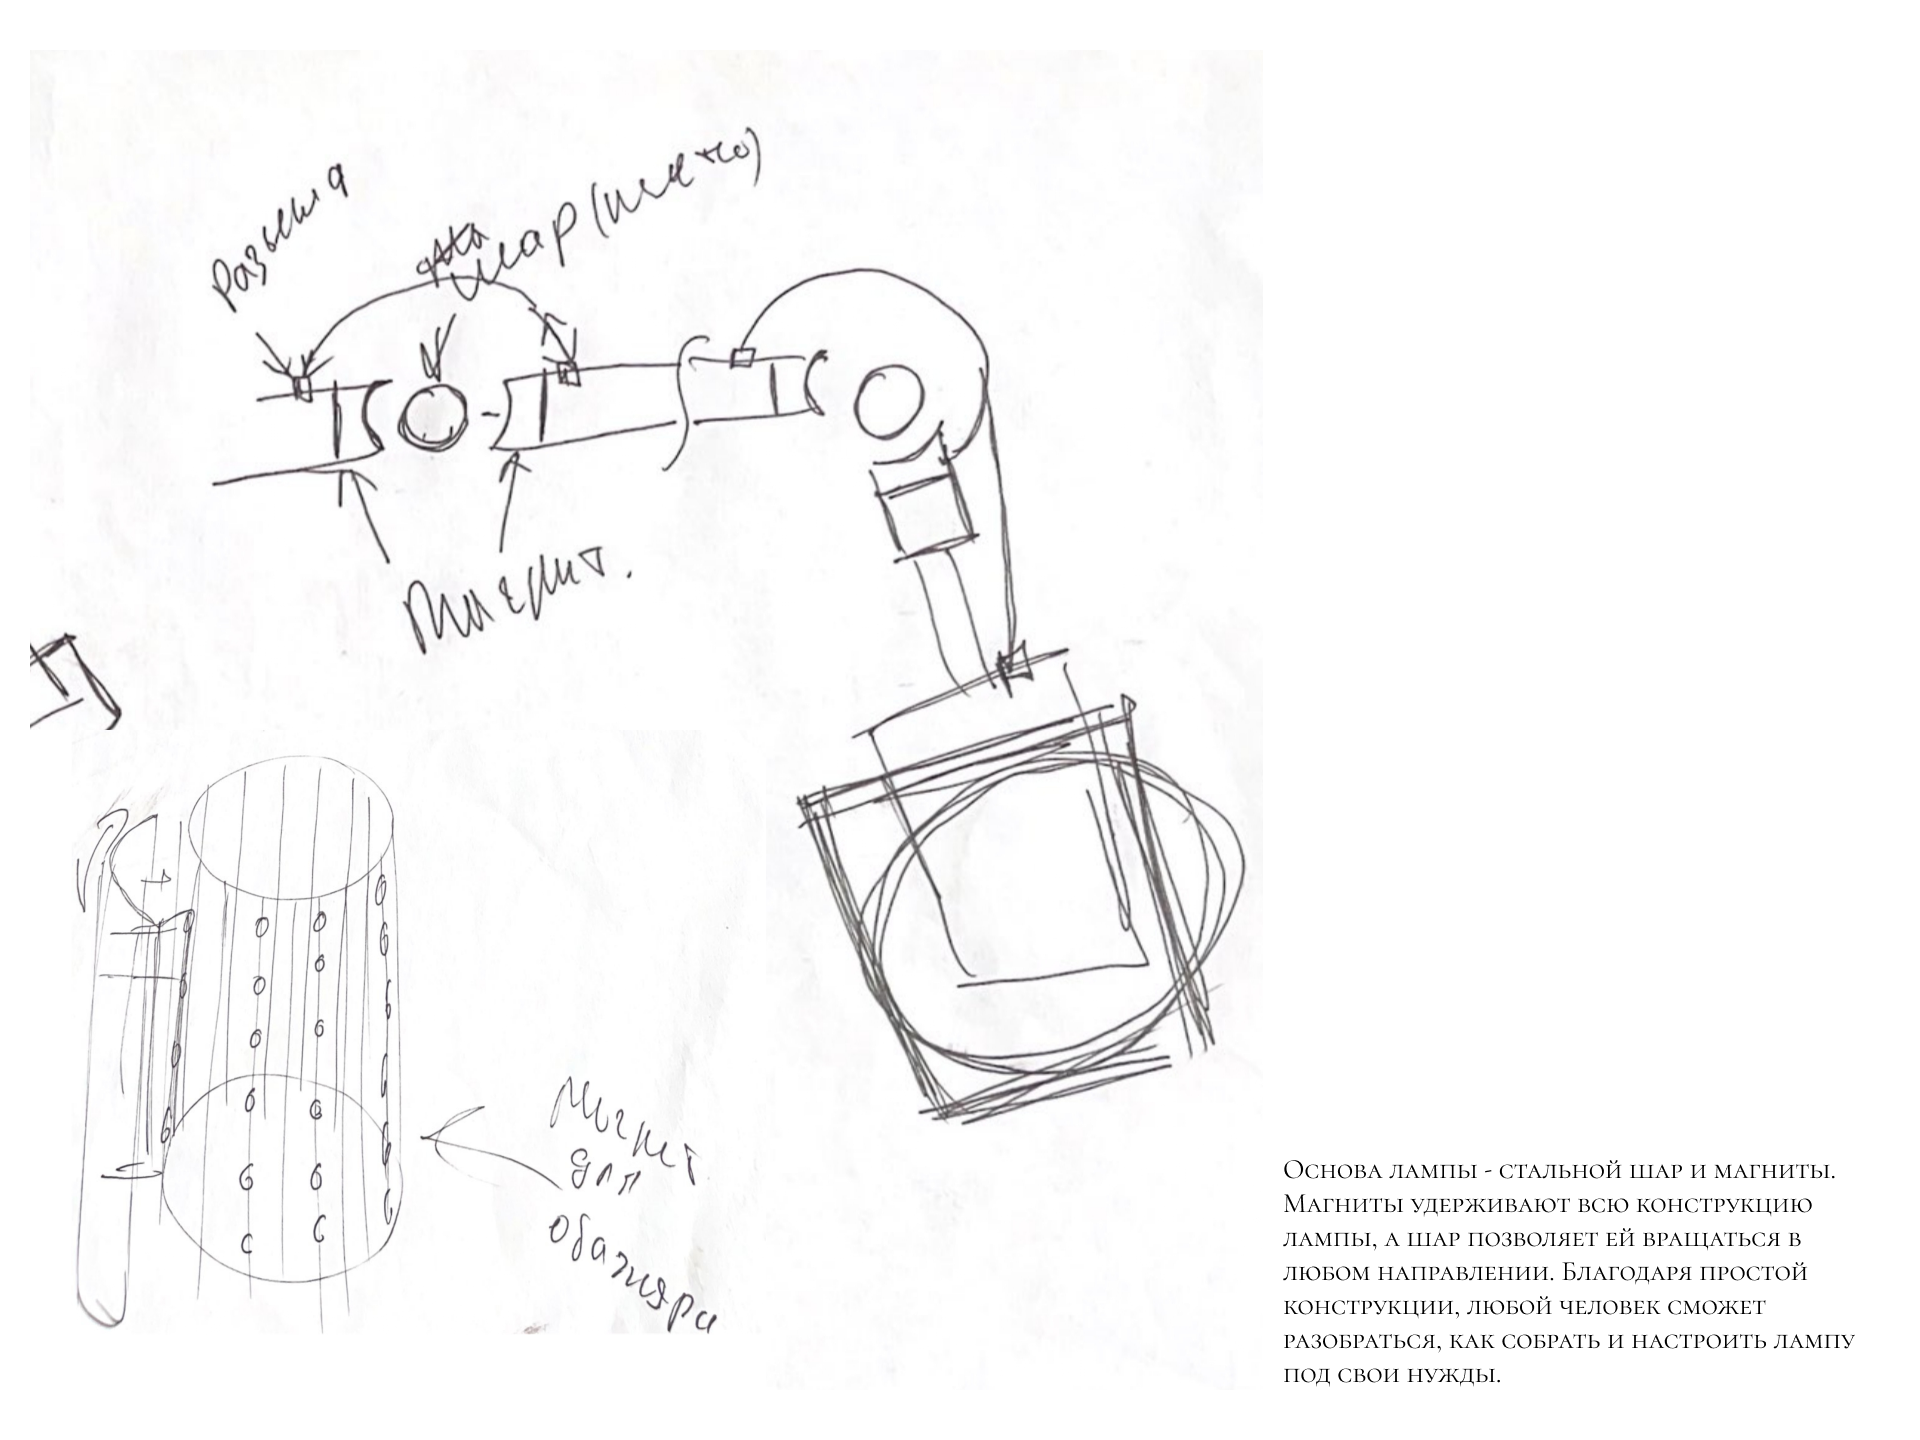 шар
магнит.
магнит
для
абажура
Основа лампы - стальной шар и магниты.
Магниты удерживают всю конструкцию
лампы, а шар позволяет ей вращаться в
любом направлении. Благодаря простой
конструкции, любой человек сможет
разобраться, как собрать и настроить лампу
под свои нужды.